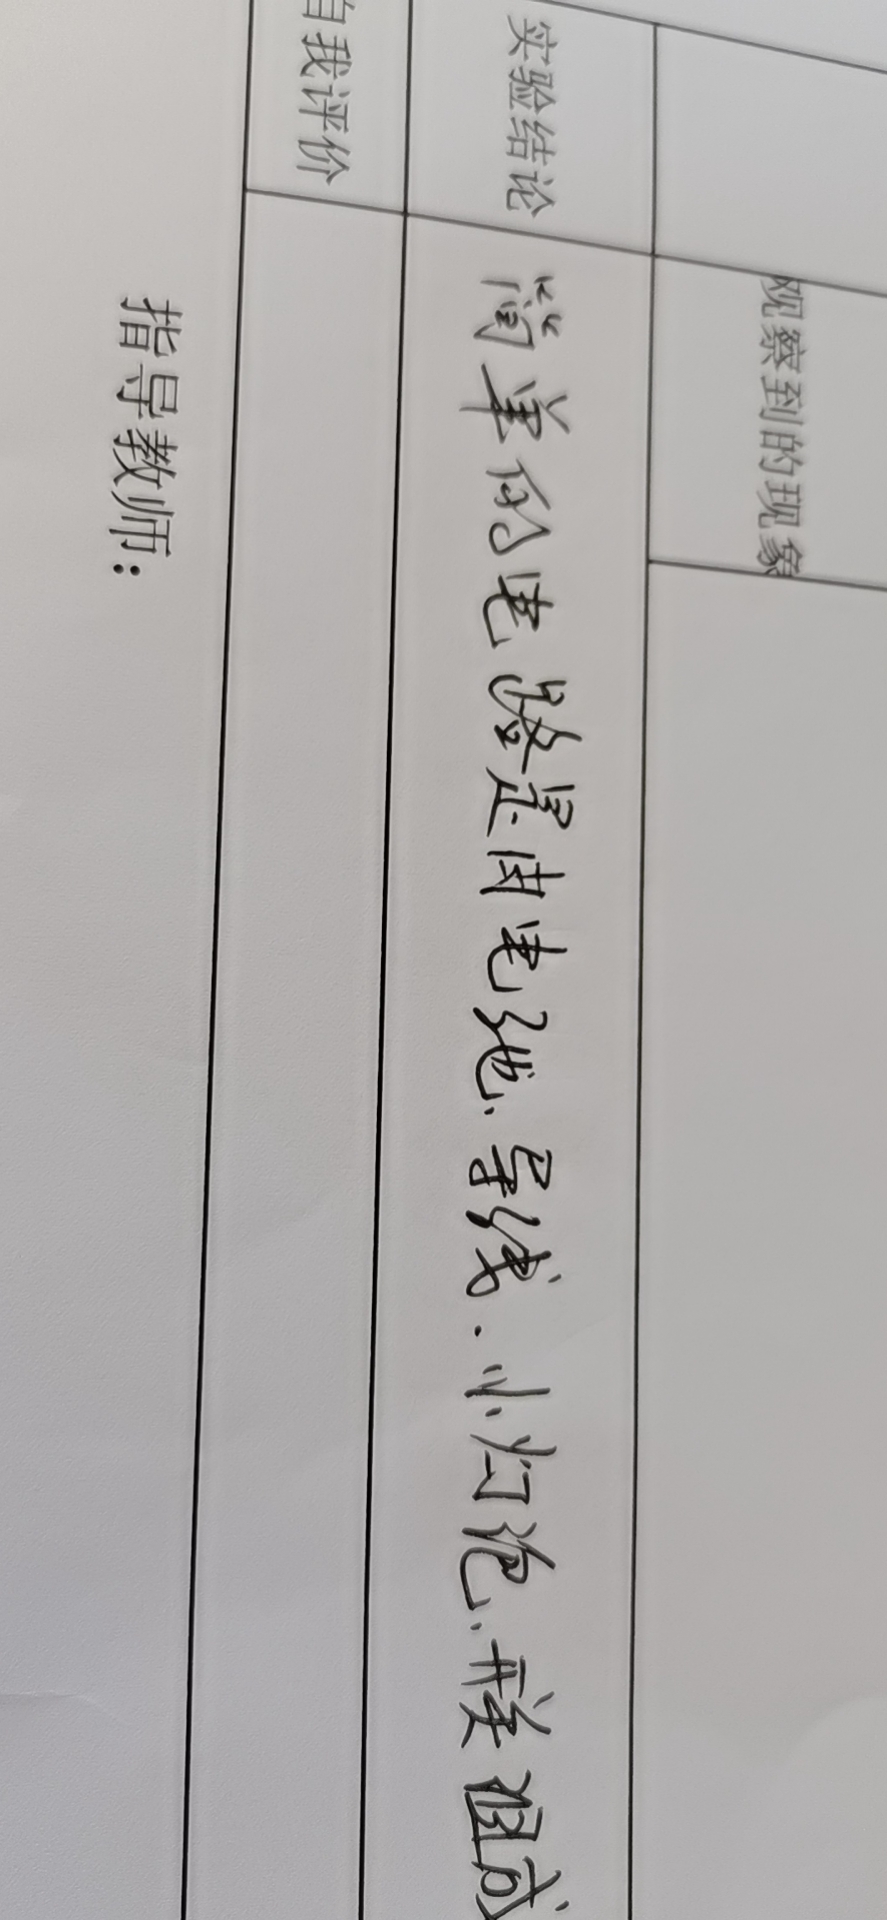 观察到的现象
实验结论
简单的电路是由电池、导线、小灯泡、开关组成
自我评价
指导教师：